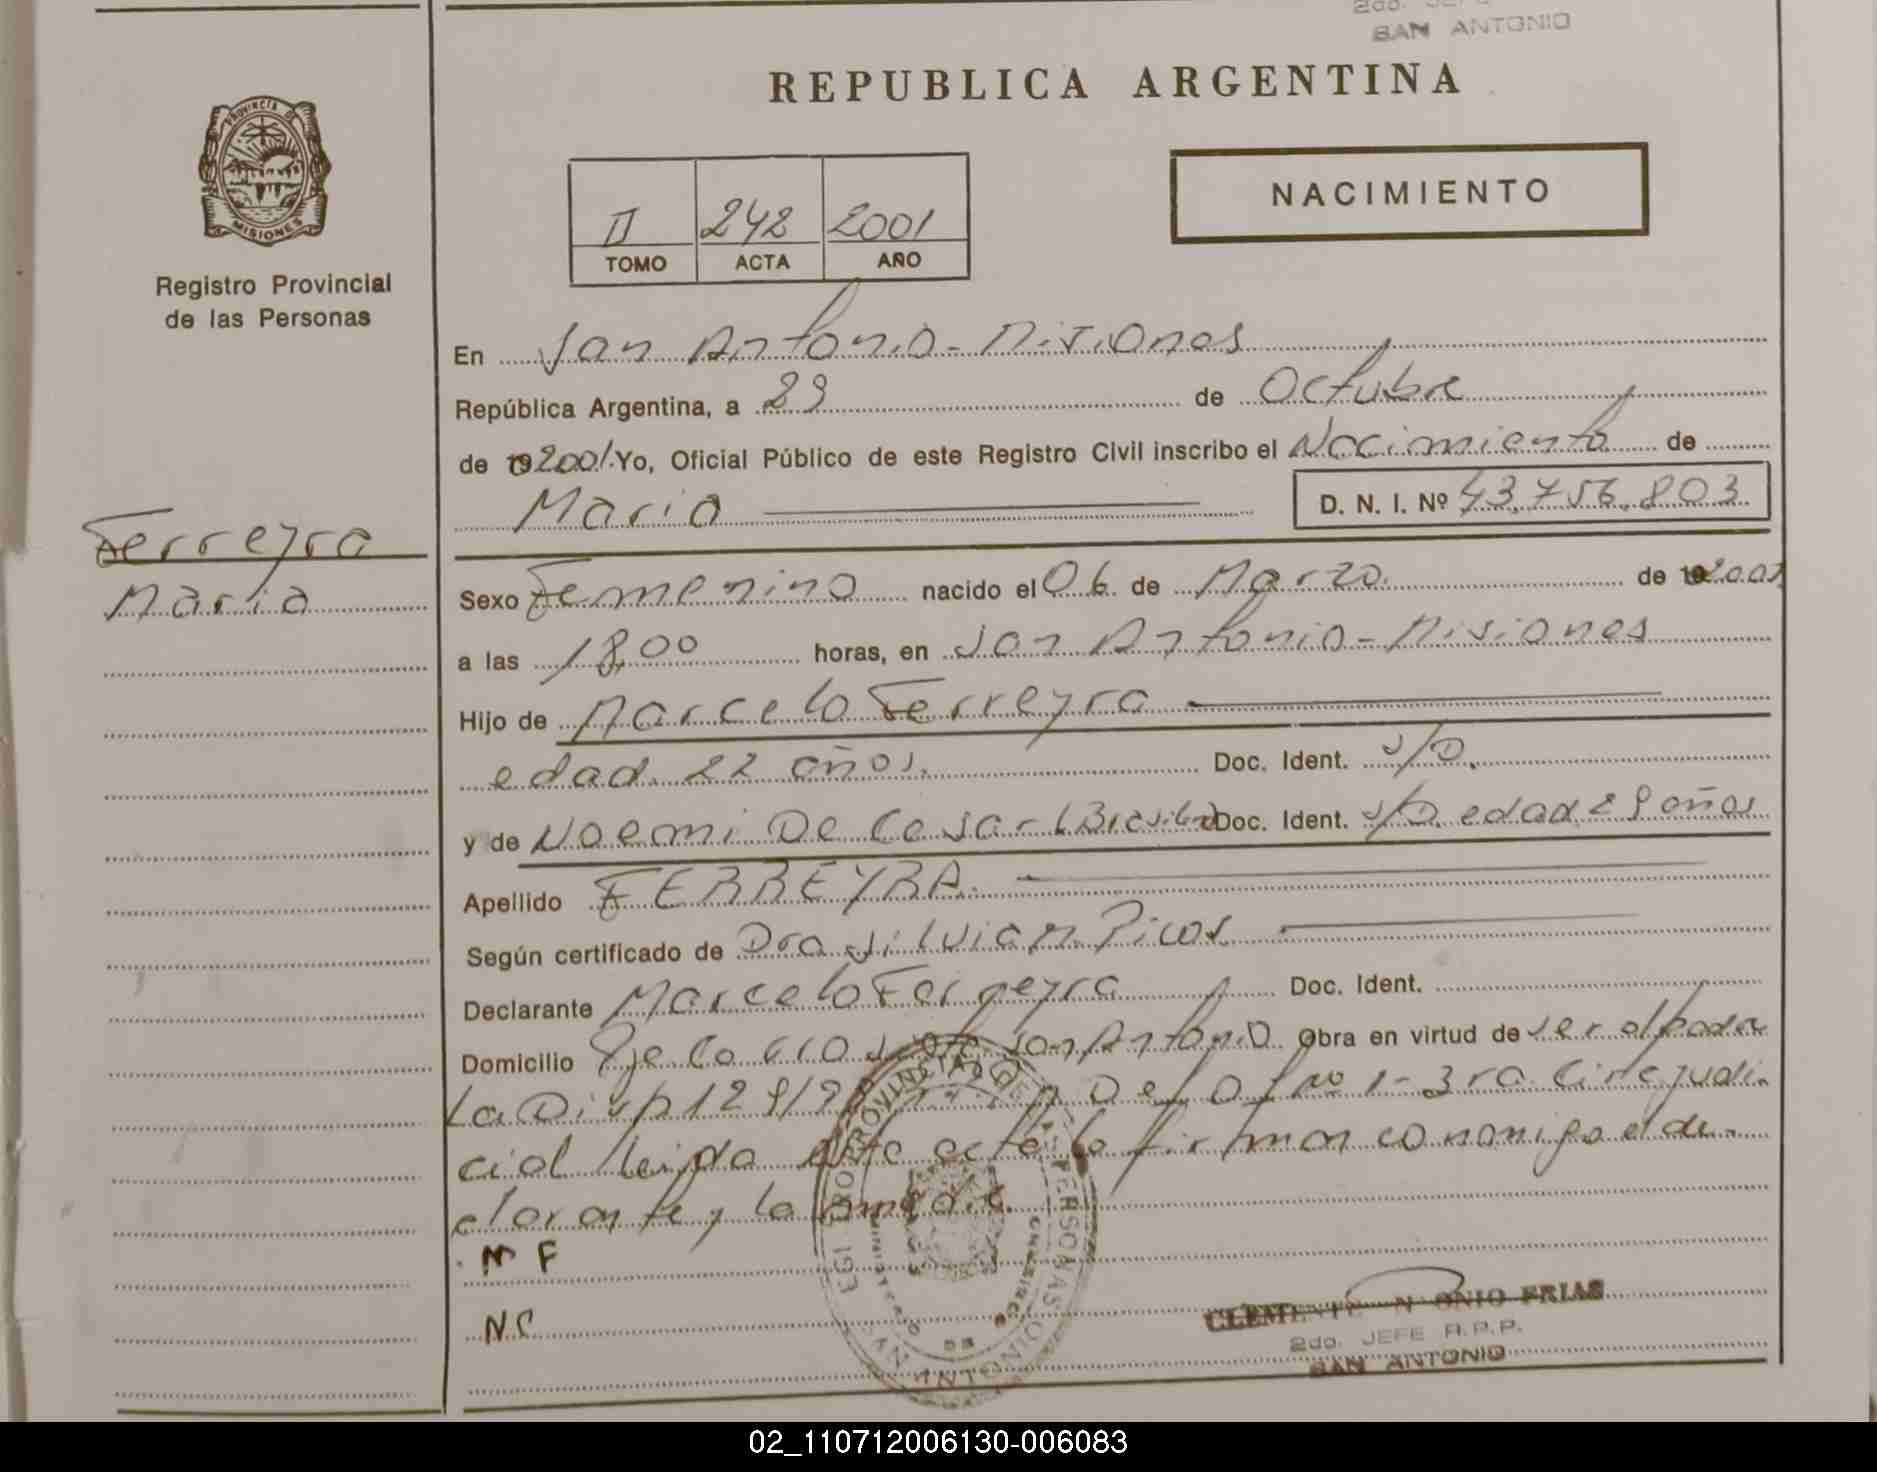 2do. JEFE
SAN ANTONIO
REPUBLICA ARGENTINA
PROVINCIA DE
MISIONES
Registro Provincial
de las Personas
II 242 2001
TOMO ACTA AÑO
NACIMIENTO
En San Antonio - Misiones
República Argentina, a 29 de Octubre
de 2001. Yo, Oficial Público de este Registro Civil inscribo el Nacimiento de
Maria D. N. I. Nº 43.756.803
Ferreyra
Maria
Sexo Femenino nacido el 06 de Marzo de 2001
a las 18,00 horas, en San Antonio - Misiones
Hijo de Marcelo Ferreyra
edad 22 años. Doc. Ident. S/D.
y de Noemi De Cesar (Brasilera) Doc. Ident. S/D. edad 29 años
Apellido FERREYRA
Según certificado de Dra Silvia M. Picos
Declarante Marcelo Ferreyra Doc. Ident.
Domicilio San Antonio Obra en virtud de ser
La Disp 129/9 De Of Nº 1 - 3ra. Circ. judi-
cial leida este acta la firman conmigo el de-
clarante y la madre.
M F
N C
PROVINCIA DE
PERSONAS
SAN ANTONIO
CLEMENTE ANTONIO FRIAS
2do. JEFE R.P.P.
SAN ANTONIO
02_110712006130-006083